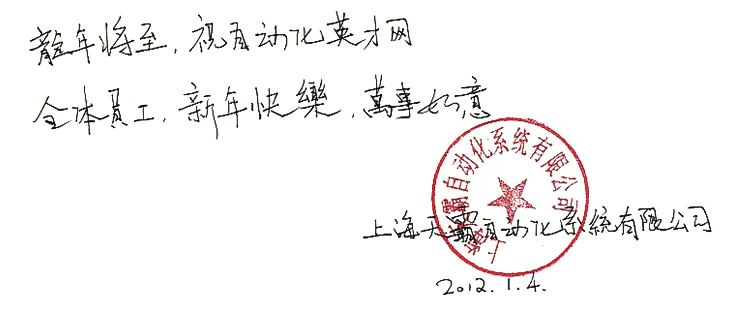 龍年将至,祝自动化英才网
全体員工,新年快樂,萬事如意
上海天霸自动化系統有限公司
上海天霸自动化系统有限公司
2012.1.4.